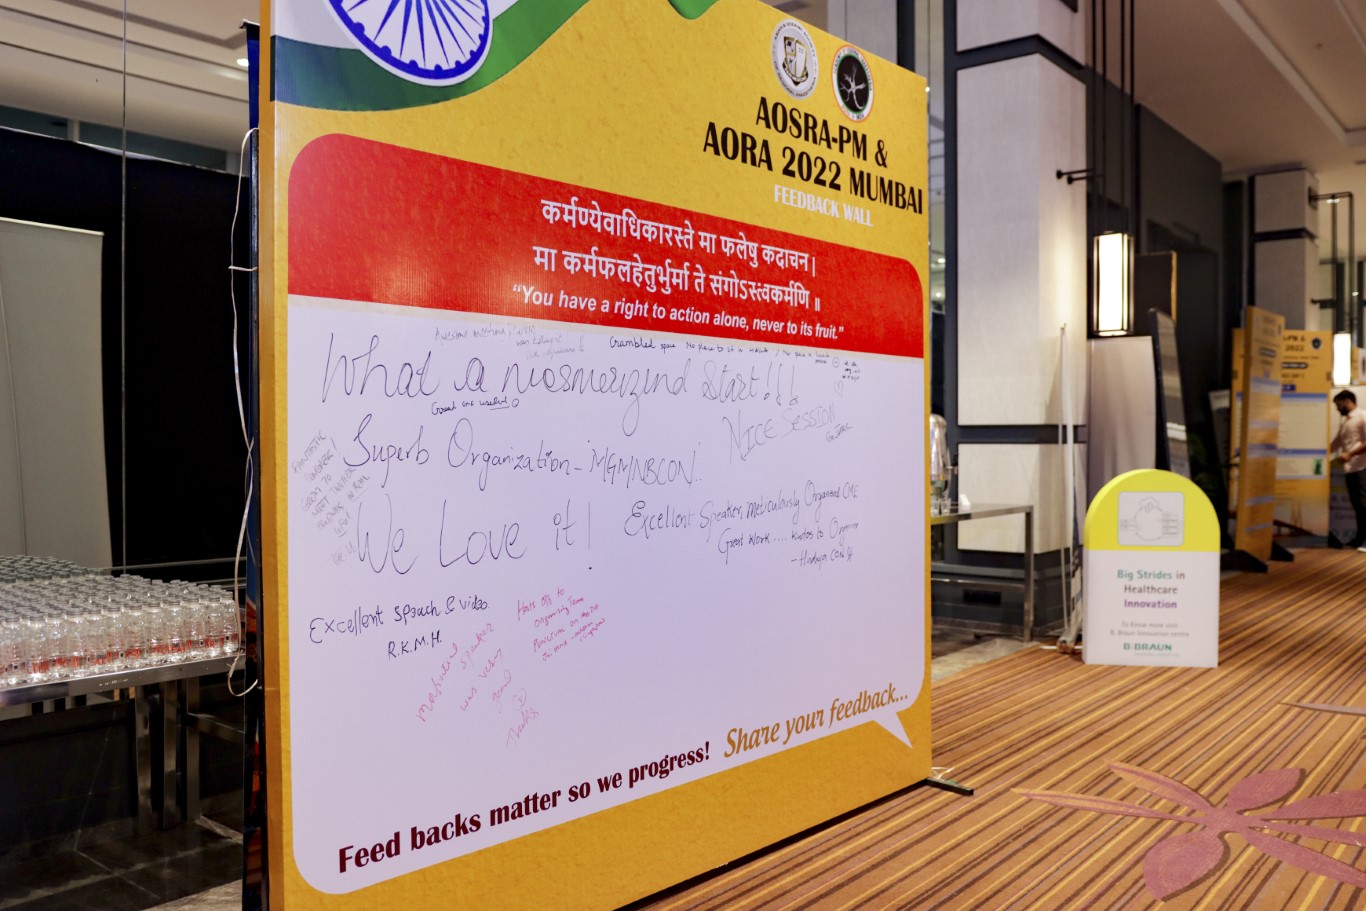 AOSRA-PM &
AORA 2022 MUMBAI
FEEDBACK WALL
कर्मण्येवाधिकारस्ते मा फलेषु कदाचन।
मा कर्मफलहेतुर्भुर्मा ते संगोऽस्त्वकर्मणि ॥
“You have a right to action alone, never to its fruit.”
Awesome meeting
Crambled space No place to sit
What a mesmerizind start!!!
Great one useful
NICE SESSION
Superb Organization - MGMNBCON..
We Love it!
Excellent Speaker, Meticulously Organised CME
Great Work .... Kudos to
Excellent speach & video
R.K.M.H.
Hats off to
Organising Team
speaker
was very
good
Share your feedback...
Feed backs matter so we progress!
PM &
2022
Big Strides in
Healthcare
Innovation
To Know more visit
B. Braun Innovation centre
B BRAUN